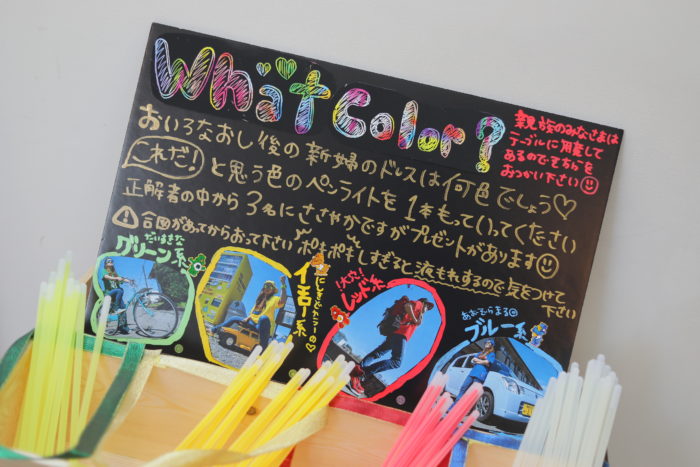 What Color?
親族のみなさまは
テーブルに用意して
あるのでそちらを
おつかい下さい
おいろなおし後の新婦のドレスは何色でしょう♡
これだ！と思う色のペンライトを1本もっていってください
正解者の中から3名にささやかですがプレゼントがあります
合図があってからおって下さい ポキポキしすぎると液もれするので気をつけて
下さい
だいすきな
グリーン系
にしきでカラーの♡
イエロー系
!大穴!
レッド系
あおぞらまる
ブルー系